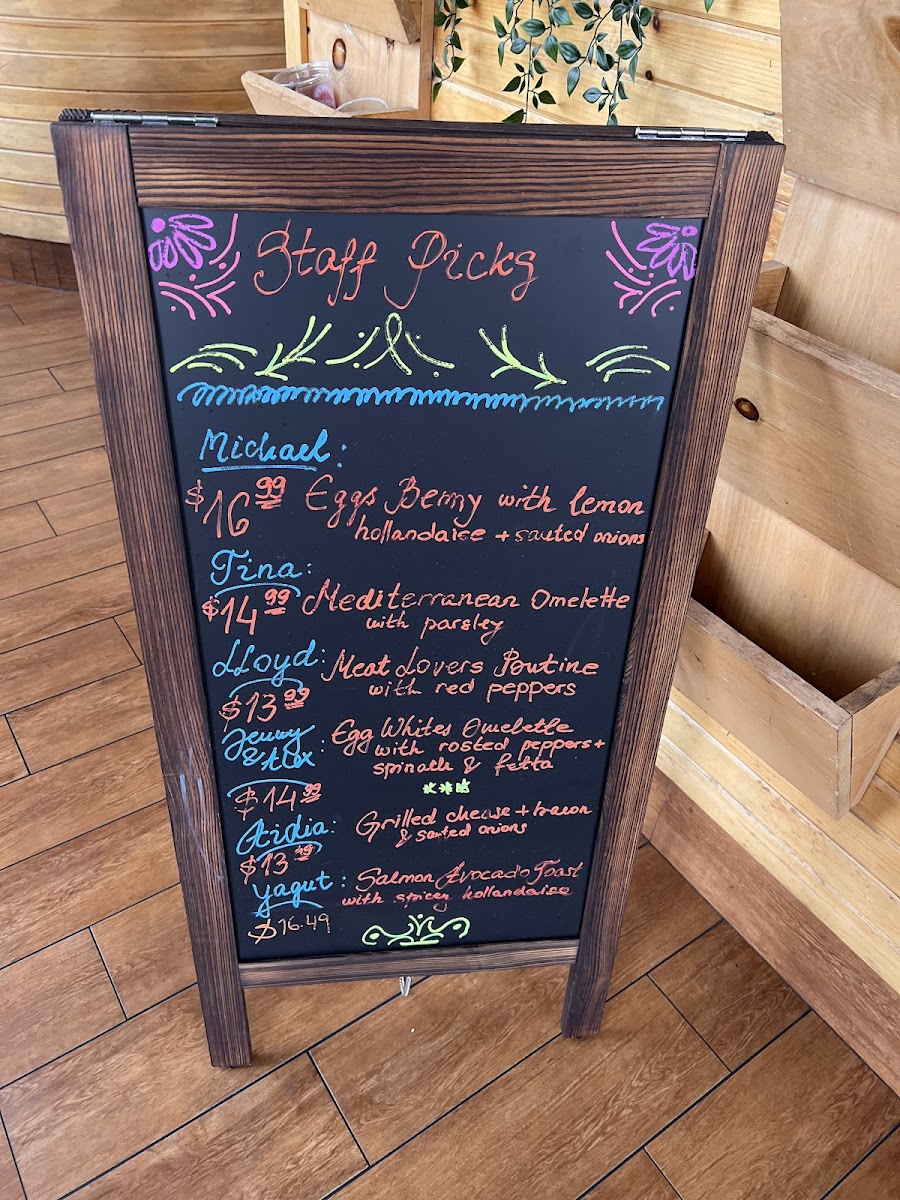 Staff Picks
Michael:
$16.99 Eggs Benny with lemon
hollandaise + sauted onions
Tina:
$14.99 Mediterranean Omelette
with parsley
Lloyd: Meat Lovers Poutine
$13.99 with red peppers
Jenny & Alex: Egg Whites Omelette
with rosted peppers +
spinach & fetta
$14.99
Aidia: Grilled cheese + bacon
& sauted onions
$13.49
Yagut: Salmon Avocado Toast
with spicey hollandaise
$16.49